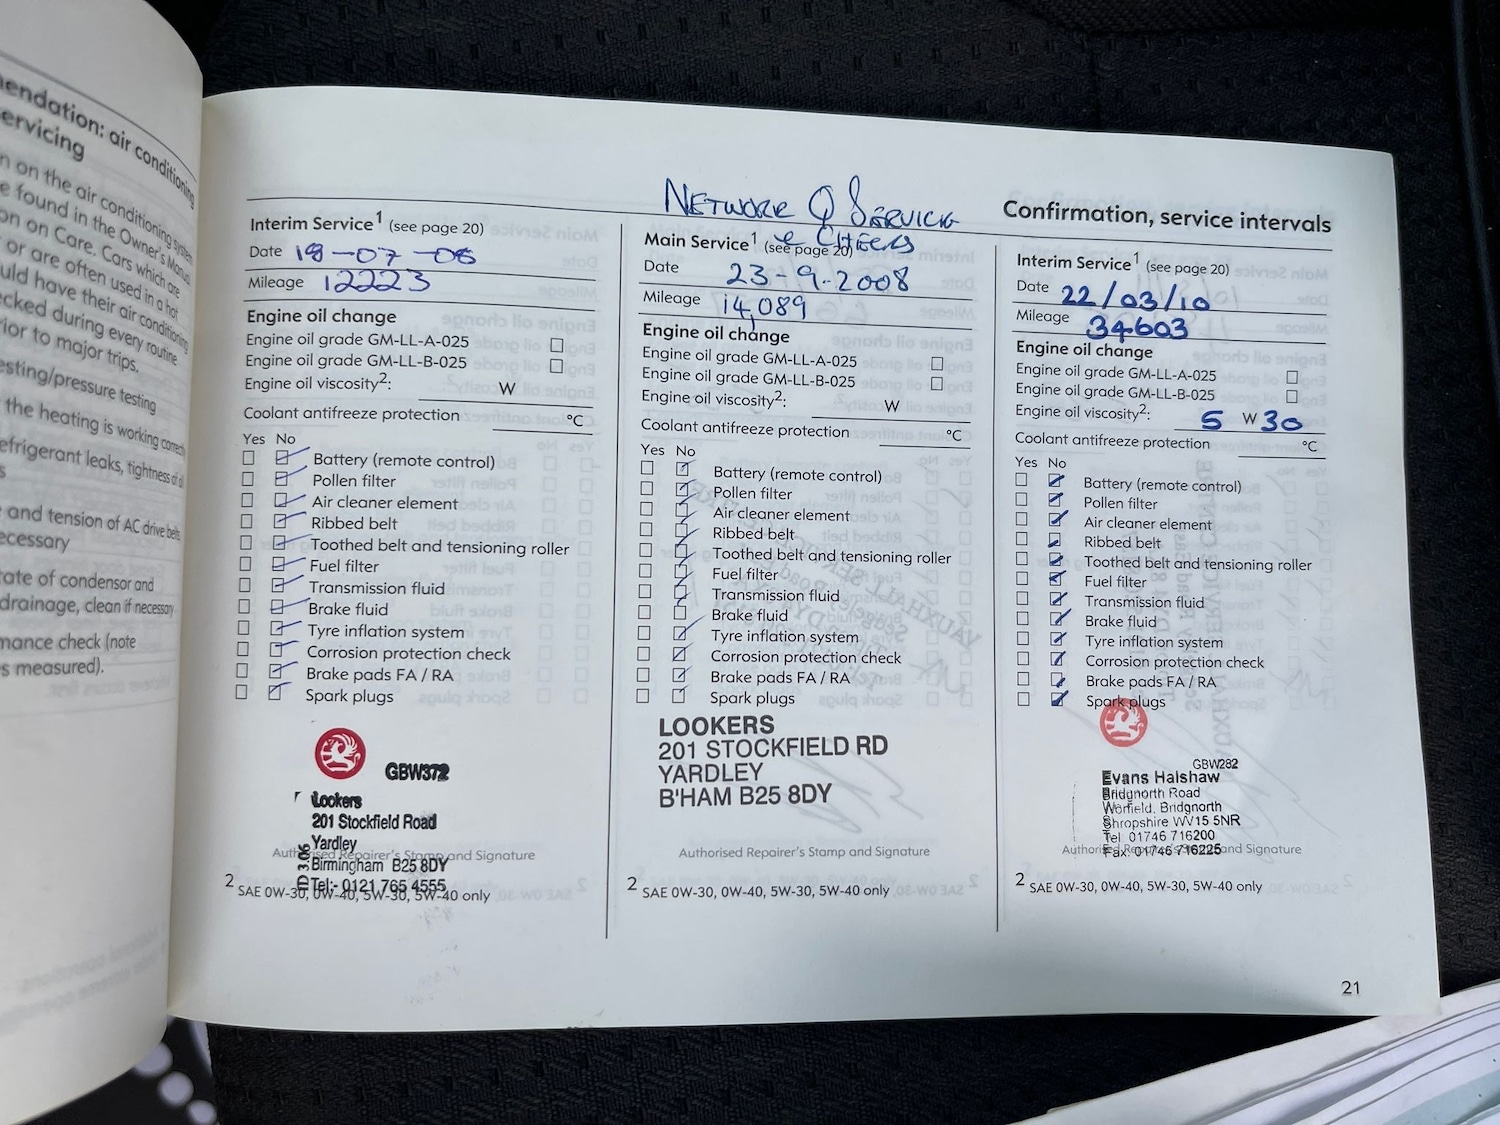 endation: air conditioning
ervicing
n on the air conditioning system
e found in the Owner's Manual
on on Care. Cars which are
r or are often used in a hot
uld have their air conditioning
cked during every routine
rior to major trips.
esting/pressure testing
the heating is working correctly
efrigerant leaks, tightness of all
s
and tension of AC drive belts
ecessary
tate of condensor and
drainage, clean if necessary
mance check (note
s measured).
NETWORK Q SERVICE
& CHECKS
Confirmation, service intervals
Interim Service1 (see page 20)
Date 18-07-08
Mileage 12223
Engine oil change
Engine oil grade GM-LL-A-025
Engine oil grade GM-LL-B-025
Engine oil viscosity2: W
Coolant antifreeze protection °C
Yes No
Battery (remote control)
Pollen filter
Air cleaner element
Ribbed belt
Toothed belt and tensioning roller
Fuel filter
Transmission fluid
Brake fluid
Tyre inflation system
Corrosion protection check
Brake pads FA / RA
Spark plugs
GBW372
Lookers
201 Stockfield Road
Yardley
Birmingham B25 8DY
Tel:- 0121 765 4555
Authorised Repairer's Stamp and Signature
2 SAE 0W-30, 0W-40, 5W-30, 5W-40 only
Main Service1 (see page 20)
Date 23-9-2008
Mileage 14,089
Engine oil change
Engine oil grade GM-LL-A-025
Engine oil grade GM-LL-B-025
Engine oil viscosity2: W
Coolant antifreeze protection °C
Yes No
Battery (remote control)
Pollen filter
Air cleaner element
Ribbed belt
Toothed belt and tensioning roller
Fuel filter
Transmission fluid
Brake fluid
Tyre inflation system
Corrosion protection check
Brake pads FA / RA
Spark plugs
LOOKERS
201 STOCKFIELD RD
YARDLEY
B'HAM B25 8DY
Authorised Repairer's Stamp and Signature
2 SAE 0W-30, 0W-40, 5W-30, 5W-40 only
Interim Service1 (see page 20)
Date 22/03/10
Mileage 34603
Engine oil change
Engine oil grade GM-LL-A-025
Engine oil grade GM-LL-B-025
Engine oil viscosity2: 5 W 30
Coolant antifreeze protection °C
Yes No
Battery (remote control)
Pollen filter
Air cleaner element
Ribbed belt
Toothed belt and tensioning roller
Fuel filter
Transmission fluid
Brake fluid
Tyre inflation system
Corrosion protection check
Brake pads FA / RA
Spark plugs
GBW282
Evans Halshaw
Bridgnorth Road
Worfield, Bridgnorth
Shropshire WV15 5NR
Tel 01746 716200
Fax: 01746 716225
Authorised Repairer's Stamp and Signature
2 SAE 0W-30, 0W-40, 5W-30, 5W-40 only
21